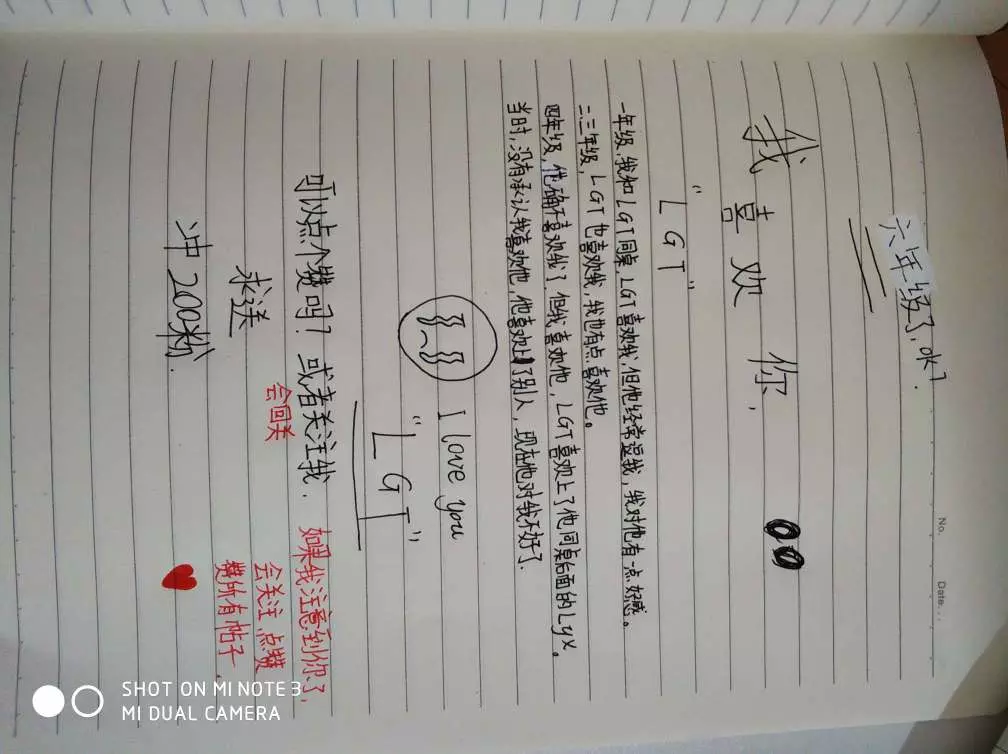 No.
Date...
六年级了,ok?
我喜欢你,
"LGT"
一年级,我和LGT同桌,LGT喜欢我,但他经常逗我,我对他有一点好感。
二、三年级,LGT也喜欢我,我也有点喜欢他。
四年级,他确不喜欢我了,但我喜欢他,LGT喜欢上了他同桌后面的Lyx。
当时,没有承认我喜欢他,他喜欢上了别人,现在他对我不好了.
I love you
"LGT"
可以点个赞吗?或者关注我.
如果我注意到你了,
会回关
会关注,点赞
求送
赞所有帖子
冲200粉.
SHOT ON MI NOTE 3
MI DUAL CAMERA